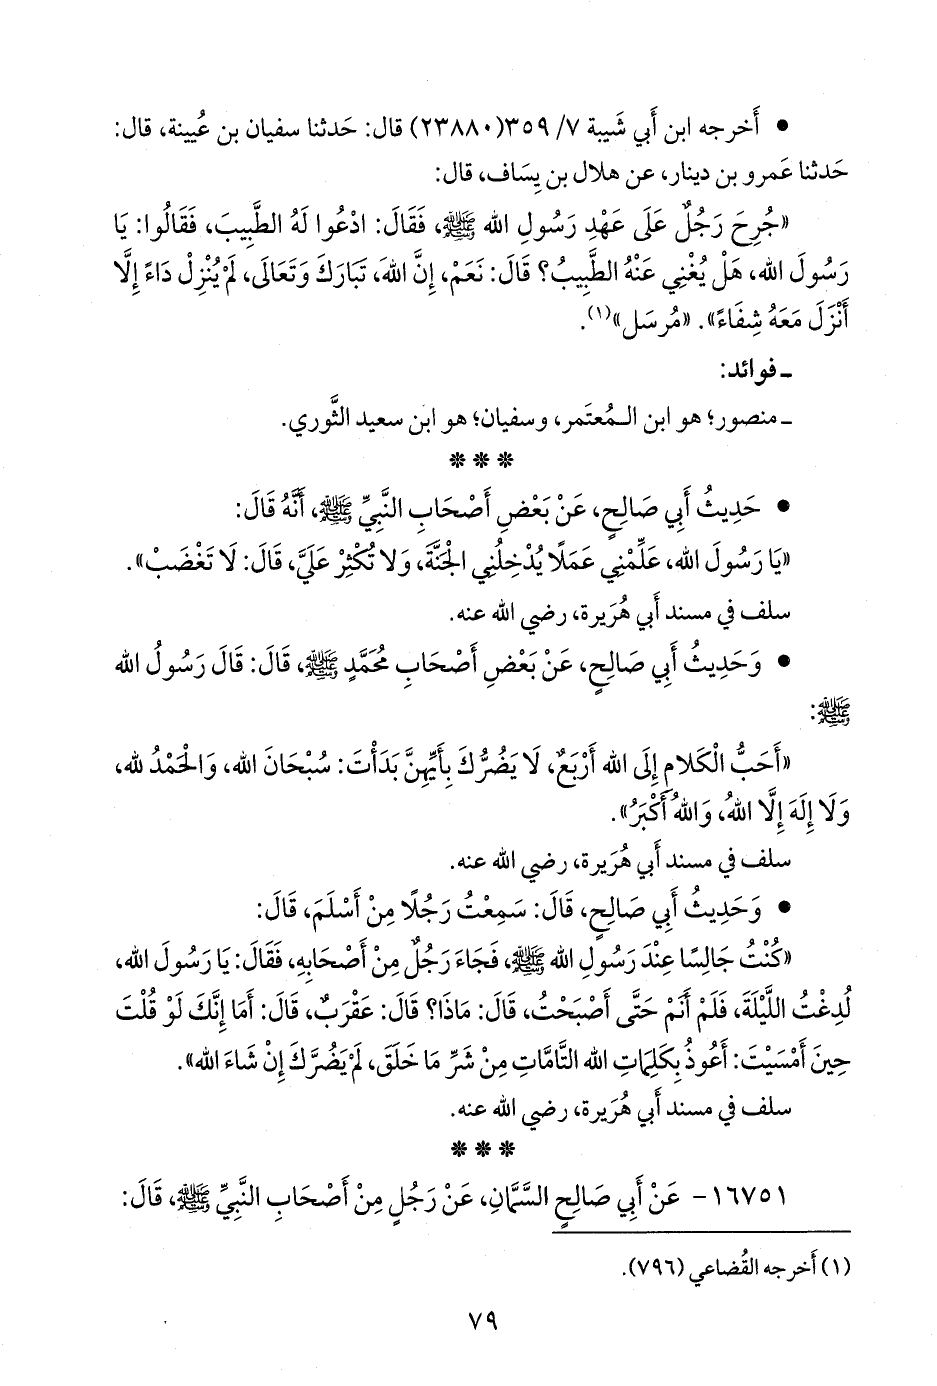 • أَخرجه ابن أَبي شَيبة ٧/ ٣٥٩(٢٣٨٨٠) قال: حَدثنا سفيان بن عُيينة، قال:
حَدثنا عَمرو بن دينار، عن هلال بن يِسَاف، قال:
«جُرِحَ رَجُلٌ عَلَى عَهْدِ رَسُولِ الله ﷺ، فَقَالَ: ادْعُوا لَهُ الطَّبِيبَ، فَقَالُوا: يَا
رَسُولَ الله، هَلْ يُغْنِي عَنْهُ الطَّبِيبُ؟ قَالَ: نَعَمْ، إِنَّ اللهَ، تَبَارَكَ وَتَعَالَى، لَمْ يُنْزِلْ دَاءً إِلَّا
أَنْزَلَ مَعَهُ شِفَاءً». «مُرسَل»(١).
ـ فوائد:
ـ منصور؛ هو ابن الـمُعتَمر، وسفيان؛ هو ابن سعيد الثَّوري.
* * *
• حَدِيثُ أَبِي صَالِحٍ، عَنْ بَعْضِ أَصْحَابِ النَّبِيِّ ﷺ، أَنَّهُ قَالَ:
«يَا رَسُولَ الله، عَلِّمْنِي عَمَلًا يُدْخِلُنِي الْجَنَّةَ، وَلَا تُكْثِرْ عَلَيَّ، قَالَ: لَا تَغْضَبْ».
سلف في مسند أَبي هُرَيرة، رضي الله عنه.
• وَحَدِيثُ أَبِي صَالِحٍ، عَنْ بَعْضِ أَصْحَابِ مُحَمَّدٍ ﷺ، قَالَ: قَالَ رَسُولُ الله
ﷺ:
«أَحَبُّ الْكَلَامِ إِلَى الله أَرْبَعٌ، لَا يَضُرُّكَ بِأَيِّهِنَّ بَدَأْتَ: سُبْحَانَ الله، وَالْحَمْدُ لله،
وَلَا إِلَهَ إِلَّا اللهُ، وَاللهُ أَكْبَرُ».
سلف في مسند أَبي هُرَيرة، رضي الله عنه.
• وَحَدِيثُ أَبِي صَالِحٍ، قَالَ: سَمِعْتُ رَجُلًا مِنْ أَسْلَمَ، قَالَ:
«كُنْتُ جَالِسًا عِنْدَ رَسُولِ الله ﷺ، فَجَاءَ رَجُلٌ مِنْ أَصْحَابِهِ، فَقَالَ: يَا رَسُولَ الله،
لُدِغْتُ اللَّيْلَةَ، فَلَمْ أَنَمْ حَتَّى أَصْبَحْتُ، قَالَ: مَاذَا؟ قَالَ: عَقْرَبٌ، قَالَ: أَمَا إِنَّكَ لَوْ قُلْتَ
حِينَ أَمْسَيْتَ: أَعُوذُ بِكَلِمَاتِ الله التَّامَّاتِ مِنْ شَرِّ مَا خَلَقَ، لَمْ يَضُرَّكَ إِنْ شَاءَ الله».
سلف في مسند أَبي هُرَيرة، رضي الله عنه.
* * *
١٦٧٥١- عَنْ أَبِي صَالِحٍ السَّمَّانِ، عَنْ رَجُلٍ مِنْ أَصْحَابِ النَّبِيِّ ﷺ، قَالَ:
(١) أَخرجه القُضاعي (٧٩٦).
٧٩